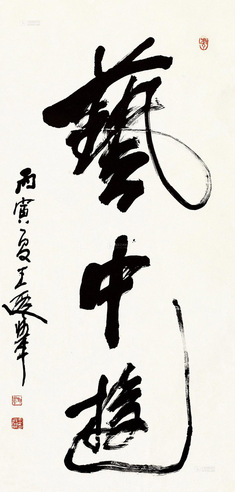 藝中遊
丙寅夏王遐舉